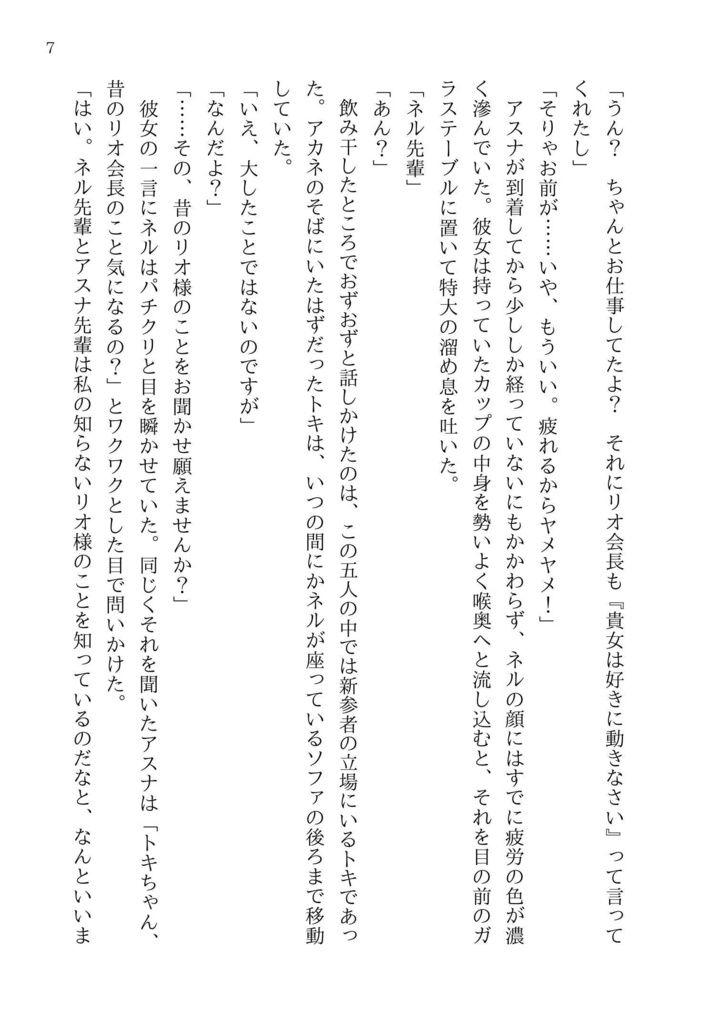 7
「うん？　ちゃんとお仕事してたよ？　それにリオ会長も『貴女は好きに動きなさい』って言って
くれたし」
「そりゃお前が……いや、もういい。疲れるからヤメヤメ！」
アスナが到着してから少ししか経っていないにもかかわらず、ネルの顔にはすでに疲労の色が濃
く滲んでいた。彼女は持っていたカップの中身を勢いよく喉奥へと流し込むと、それを目の前のガ
ラステーブルに置いて特大の溜め息を吐いた。
「ネル先輩」
「あん？」
飲み干したところでおずおずと話しかけたのは、この五人の中では新参者の立場にいるトキであっ
た。アカネのそばにいたはずだったトキは、いつの間にかネルが座っているソファの後ろまで移動
していた。
「いえ、大したことではないのですが」
「なんだよ？」
「……その、昔のリオ様のことをお聞かせ願えませんか？」
彼女の一言にネルはパチクリと目を瞬かせていた。同じくそれを聞いたアスナは「トキちゃん、
昔のリオ会長のこと気になるの？」とワクワクとした目で問いかけた。
「はい。ネル先輩とアスナ先輩は私の知らないリオ様のことを知っているのだなと、なんといいま